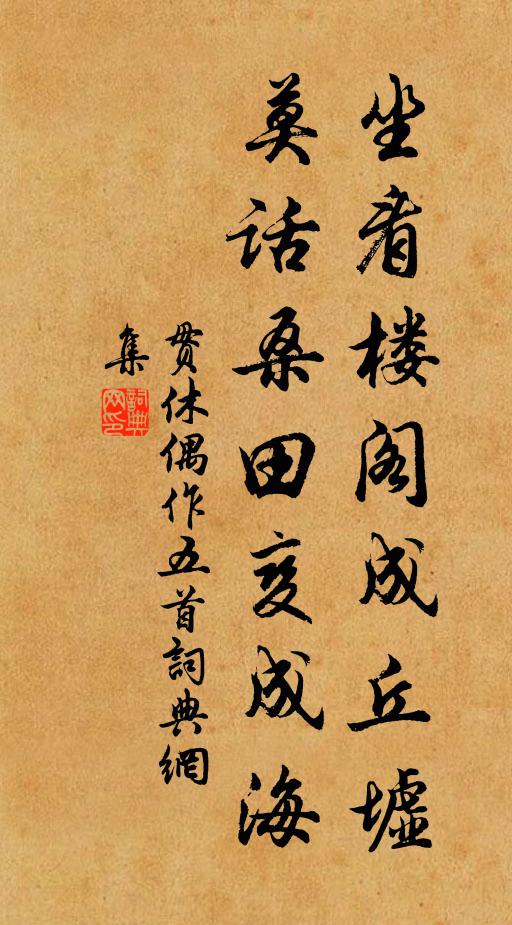 坐看楼阁成丘墟
莫话桑田变成海
贯休偶作五首詞典網
集
詞典網印